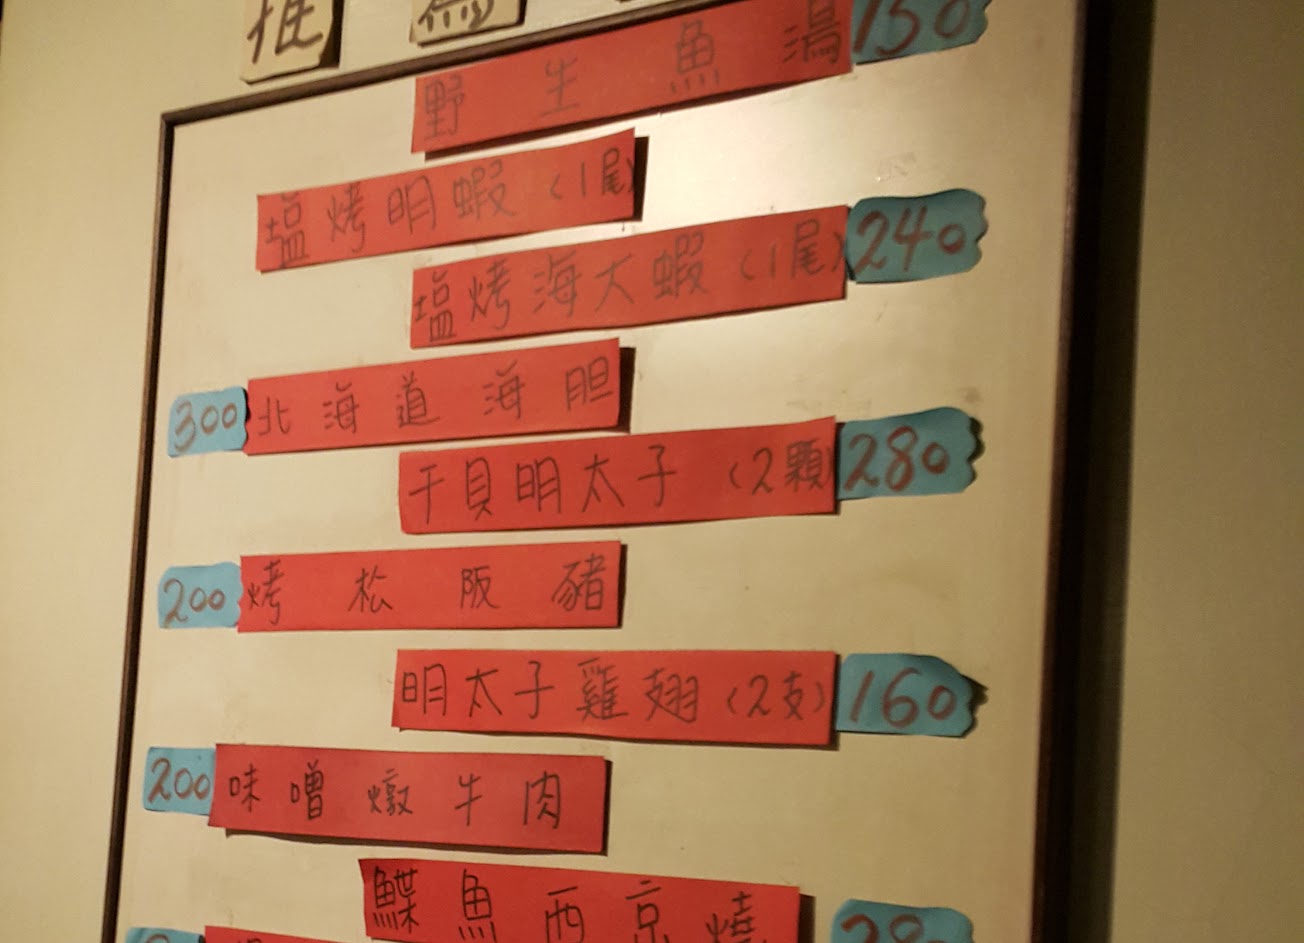 推薦
野生魚湯 150
塩烤明蝦(1尾)
塩烤海大蝦(1尾) 240
300 北海道海胆
干貝明太子(2顆) 280
200 烤松阪豬
明太子雞翅(2支) 160
200 味噌燉牛肉
鰈魚西京燒 280